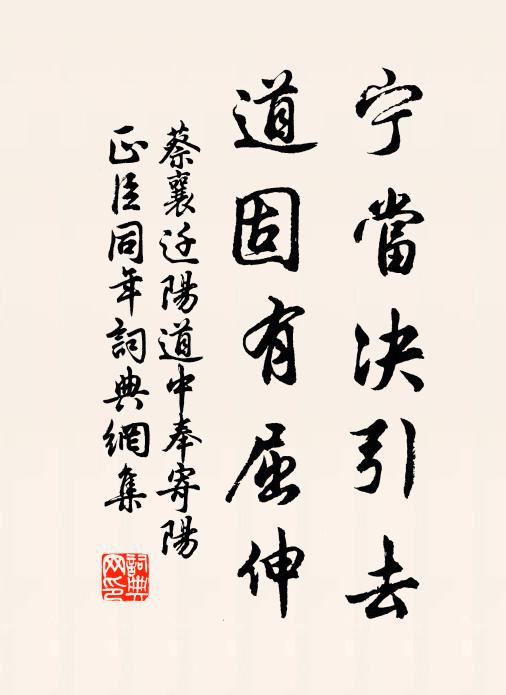 宁當决引去
道固有屈伸
蔡襄迁陽道中奉寄陽
正臣同年詞典網集
詞典
网印